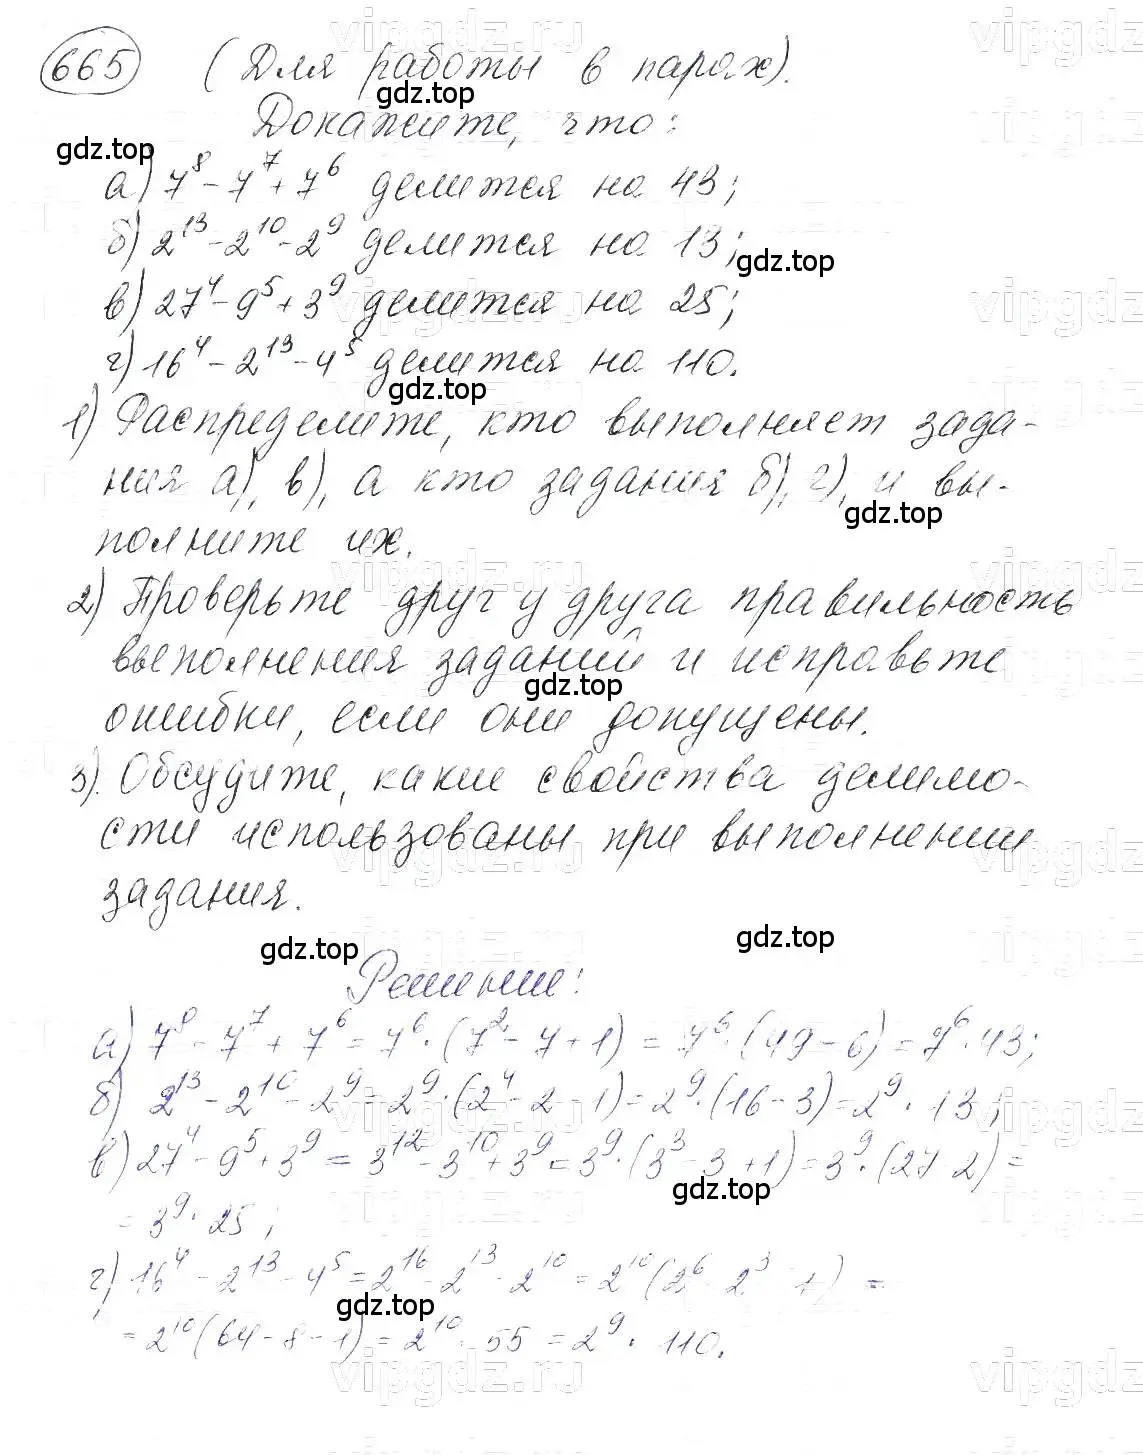 665 (Для работы в парах).
Докажите, что:
а) 7⁸ - 7⁷ + 7⁶ делится на 43;
б) 2¹³ - 2¹⁰ - 2⁹ делится на 13;
в) 27⁴ - 9⁵ + 3⁹ делится на 25;
г) 16⁴ - 2¹³ - 4⁵ делится на 110.
1) Распределите, кто выполняет зада-
ния а), в), а кто задания б), г), и вы-
полните их.
2) Проверьте друг у друга правильность
выполнения заданий и исправьте
ошибки, если они допущены.
3). Обсудите, какие свойства делимо-
сти использованы при выполнении
задания.
Решение:
а) 7⁸ - 7⁷ + 7⁶ = 7⁶ · (7² - 7 + 1) = 7⁶ · (49 - 6) = 7⁶ · 43;
б) 2¹³ - 2¹⁰ - 2⁹ = 2⁹ · (2⁴ - 2 - 1) = 2⁹ · (16 - 3) = 2⁹ · 13;
в) 27⁴ - 9⁵ + 3⁹ = 3¹² - 3¹⁰ + 3⁹ = 3⁹ · (3³ - 3 + 1) = 3⁹ · (27 - 2) =
= 3⁹ · 25;
г) 16⁴ - 2¹³ - 4⁵ = 2¹⁶ - 2¹³ - 2¹⁰ = 2¹⁰ (2⁶ - 2³ - 1) =
= 2¹⁰ (64 - 8 - 1) = 2¹⁰ · 55 = 2⁹ · 110.
gdz.top
gdz.top
gdz.top
gdz.top
gdz.top
gdz.top
gdz.top
gdz.top
gdz.top
gdz.top
vipgdz.ru
vipgdz
vipgdz.ru
vipgdz